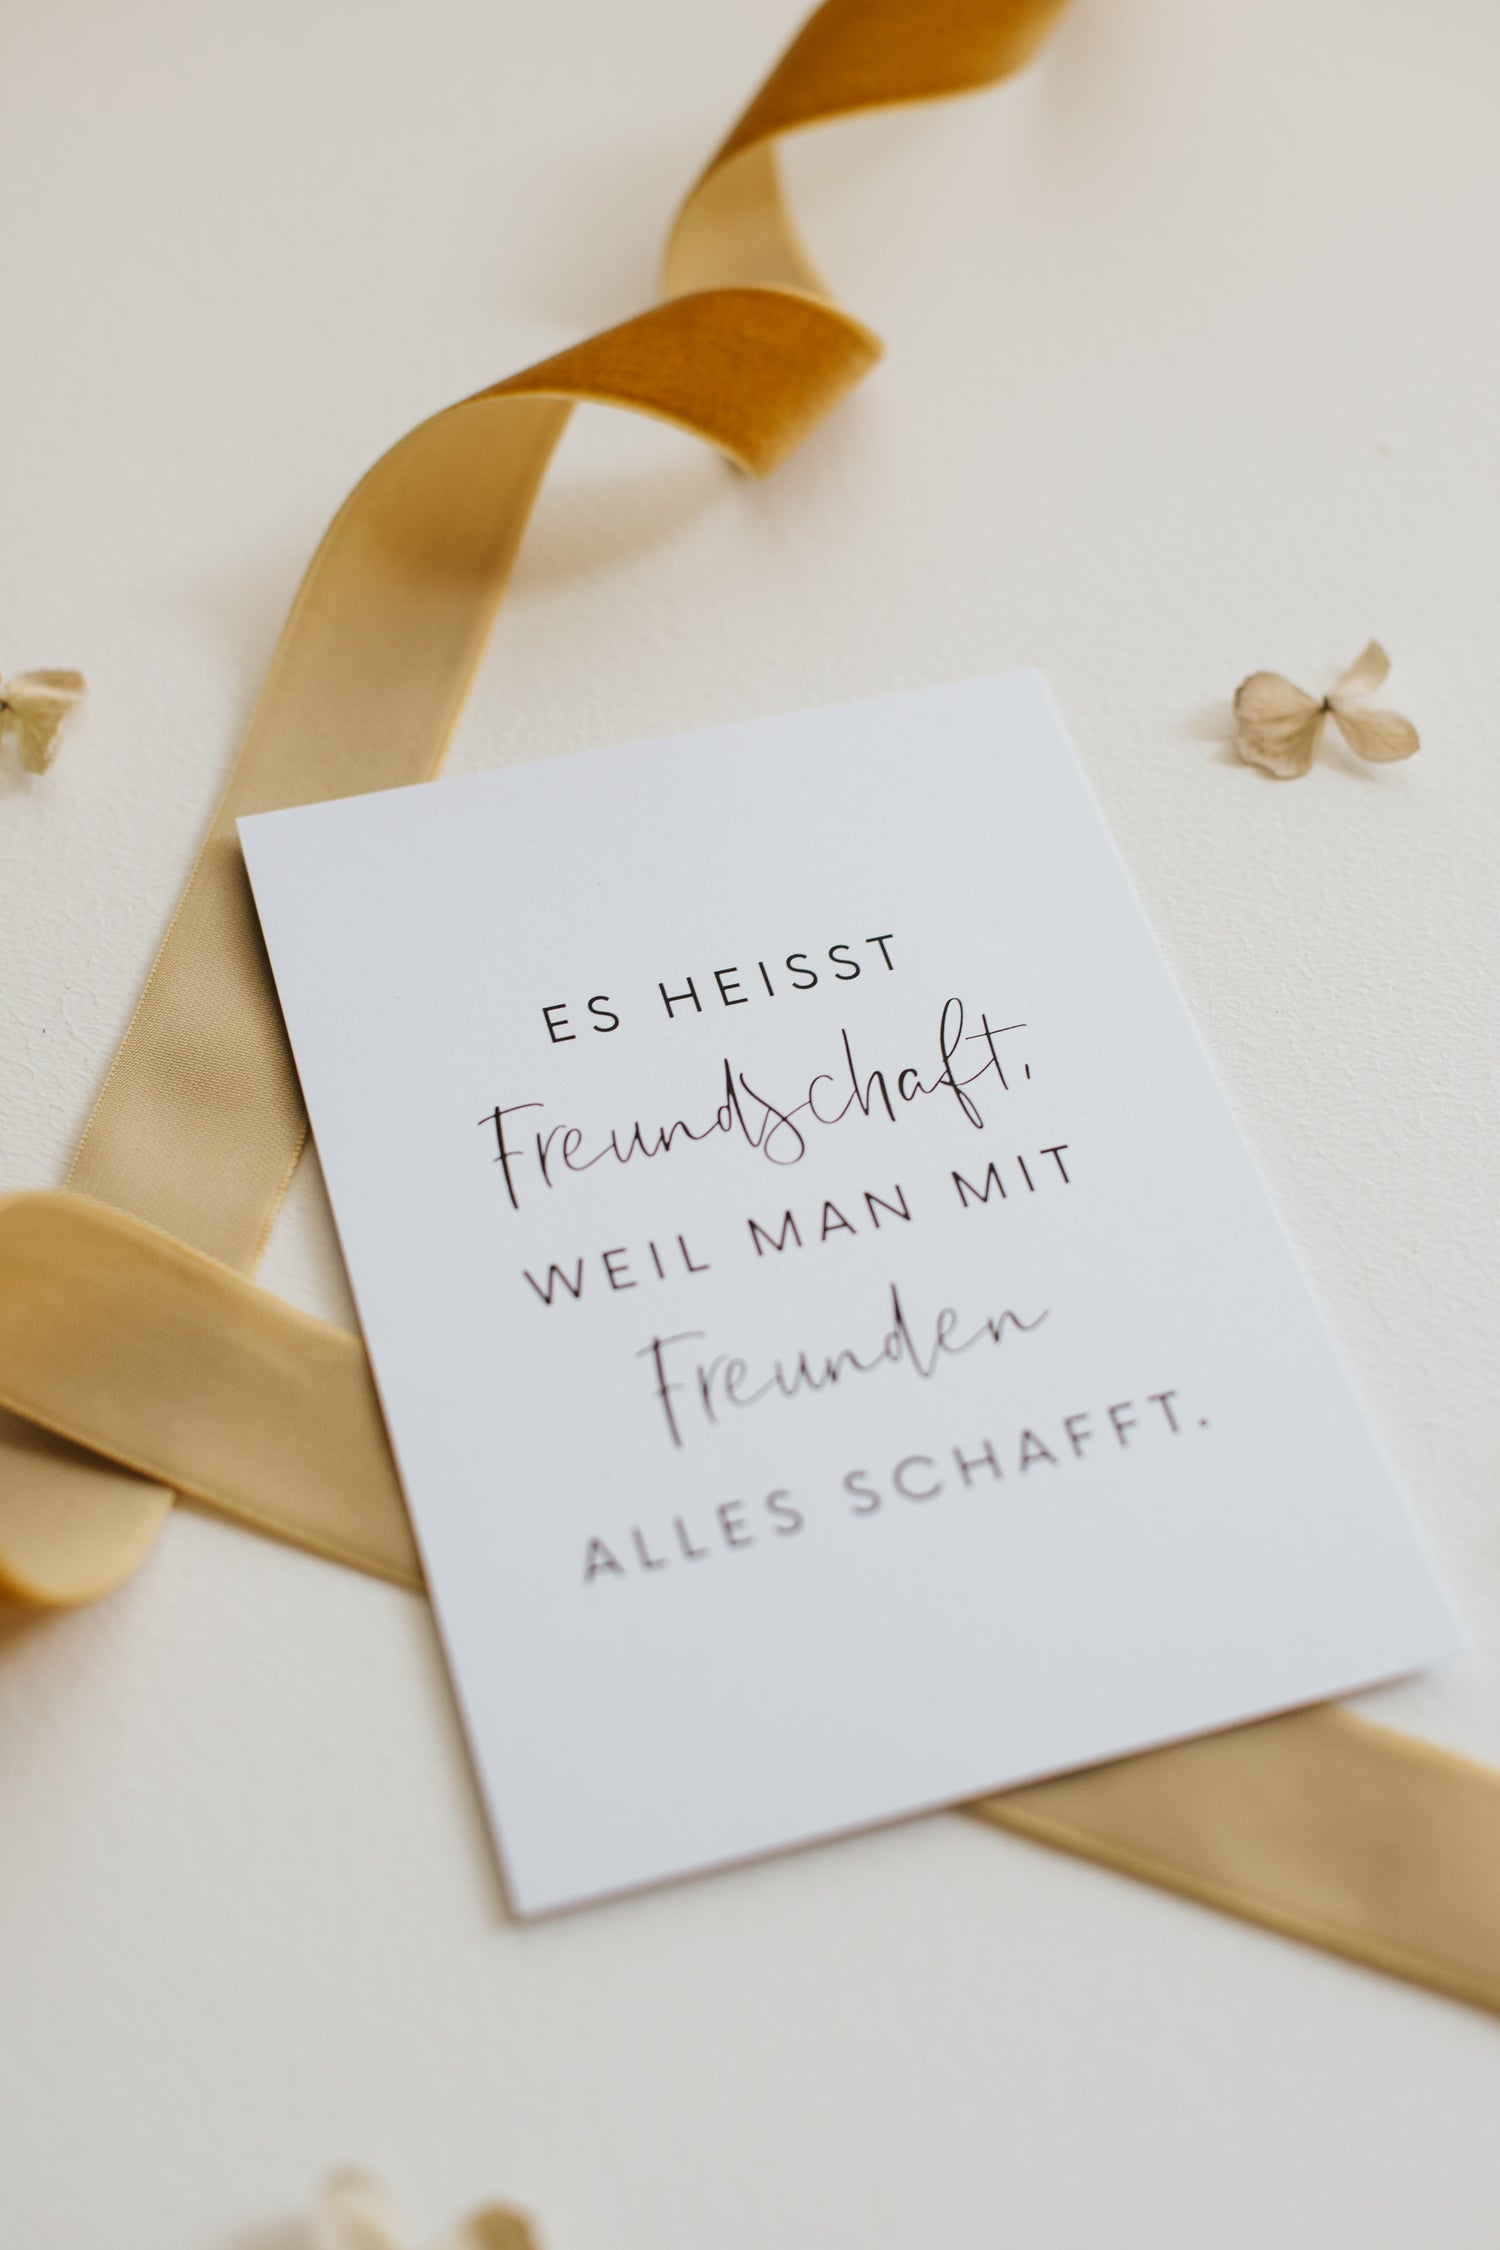 ES HEISST
Freundschaft,
WEIL MAN MIT
Freunden
ALLES SCHAFFT.